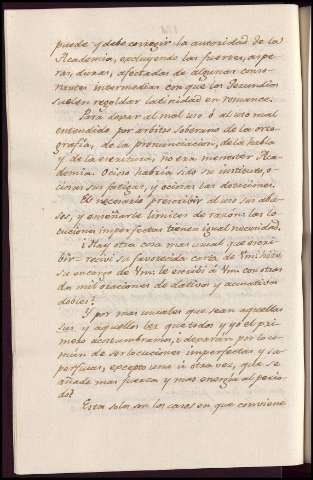 puede y debe corregir la autoridad de la
Academia, excluyendo las fuerzas, aspe-
ras, duras, afectadas de algunas conso-
nantes intermedias con que los Facundios
suelen regoldar latinidad en romance.
Para dexar al mal uso ó al uso mal
entendido por arbitro soberano de la orto-
grafía, de la pronunciacion, de la habla
y de la escritura, no era menester Aca-
demia. Ocioso habria sido su instituto, o-
ciosas sus fatigas, y ociosas las decisiones.
Es necesario prescribir al uso sus abu-
sos, y enseñarle limites de razon: las lo-
cuciones imperfectas tienen igual necesidad.
¿Hay otra cosa mas usual que escri-
bir = recivi su favorecida carta de Vm: hice
su encargo de Vm: le escribí á Vm: con otras
mil oraciones de dativos y acusativos
dobles?
Y por mas usuales que sean aquellas
sus, y aquellos les que todos y yo el pri-
mero acostumbramos, ¿dexarán por lo co-
mún de ser locuciones imperfectas y su-
perfluas, excepto una ú otra vez, que se
añade mas fuerza y mas energía al perio-
do?
Estos solos son los casos en que conviene